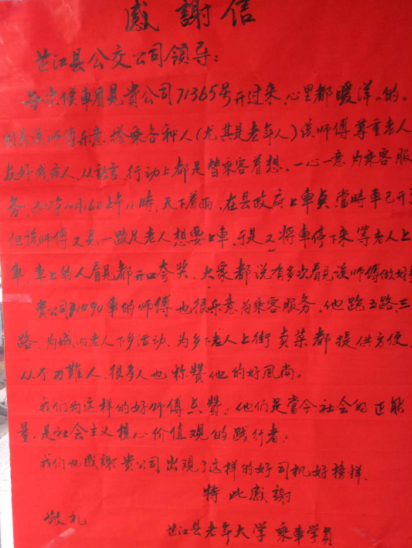 感謝信
芷江县公交公司领导：
每次候車看見贵公司71365号开过来，心里都暖洋々的。
该师傅乐意搭乘各种人（尤其是老年人）该师傅尊重老人
友好成病人，从語言行动上都是替乘客着想。一心一意为乘客服
务。16日上午11時，天下着雨，在县政府上車點，當時車已开
但该师傅又見一路是老人想要上車，于是又將車停下来等老人上
車 車上的人看見都开口夸奖，大家都说有多次看見该师傅做好
贵公司1094車的师傅也很乐意为乘客服务，他跑2路、三
路 为城内老人下乡活动，为乡下老人上街卖菜都提供方便
从不刁難人，很多人也称赞他的好風尚。
我们为这样的好师傅点赞，他们是當今社会的正能
量，是社会主义核心价值观的践行者，
我们也感謝贵公司出現了这样的好司机好榜样
特此感謝
敬礼
芷江县老年大学乘車学员